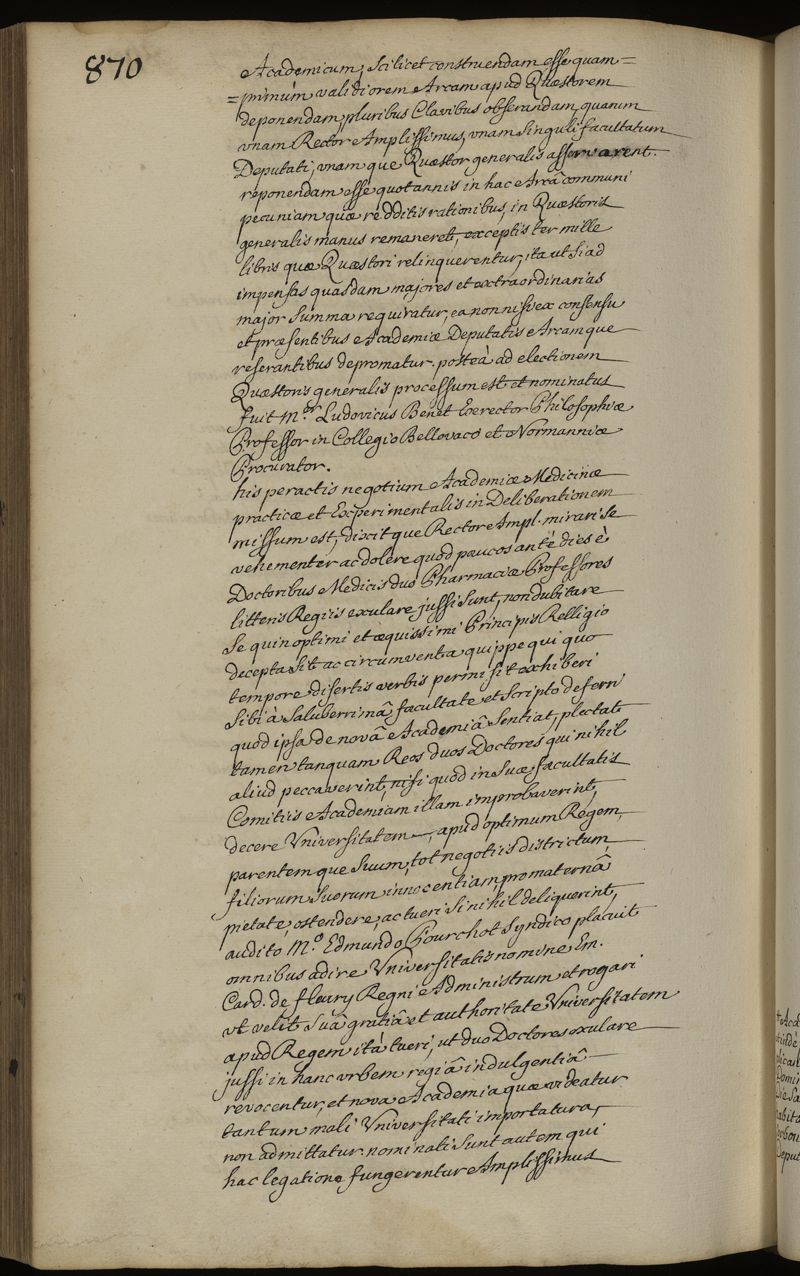 870
Academicum, scilicet construendam esse quam=
=primùm validiorem Arcam apud Quæstorem
deponendam, pluribus Clavibus obserandam, quarum
vnam Rector Amplissimus, vnam singuli facultatum
Deputati, vnamque Quæstor generalis asservarent.
reponendam esse quotannis in hac Arcâ communi
pecuniam quæ redditis rationibus, in Quæstoris
generalis manus remaneret, exceptis ter mille
libris quæ Quæstori relinquerentur, ita ut si ad
impensas quasdam majores et extraordinarias
major summa requiratur, ea non nisi ex consensu
et præsentibus Academiæ Deputatis Arcamque
reserantibus depromatur. posteà ad electionem
Quæstoris generalis processum est et nominatus
fuit M.er Ludovicus Benet Exrector Philosophiæ
Professor in Collegio Bellovaco et Normanniæ
Procurator.
his peractis negotium Academiæ Medicinæ
practicæ et Experimentalis in Deliberationem
missum est, dixitque Rector Ampl. mirari se
vehementer ac dolere quod paucos antè dies è
Doctoribus Medicis duo Pharmaciæ Professores
litteris Regiis exulare jussi sunt, non dubitare
se quin optimi et æquissimi Principis Relligio
decepta sit ac circumventa quippe qui quo
tempore disertis verbis permisit exhiberi
sibi à saluberrimâ facultate et scripto deferri
quod ipsa de novâ Academiâ sentiat, plectat
tamen tanquam Reos duos Doctores qui nihil
aliud peccaverint, nisi quod in suæ facultatis
Comitiis Academiam illam improbaverint,
decere Vniversitatem, apud optimum Regem,
parentemque suum, tot negotiis districtum
filiorum suorum innocentiam pro maternâ
pietate, ostendere, ac tueri si nihil deliquerint,
audito M.o Edmundo Pourchot Syndico placuit
omnibus adire Vniversitatis nomine Em.
Card. de fleury Regni Administrum et rogari
vt velit suâ gratiâ et authoritate Vniversitatem
apud Regem ità tueri, ut duo Doctores exulare
jussi in hanc vrbem regiâ indulgentiâ
revocentur, et nova Academia quæ videatur
tantum mali Vniversitati importatura,
non admittatur. nominati sunt autem qui
hac legatione fungerentur Amplissimus